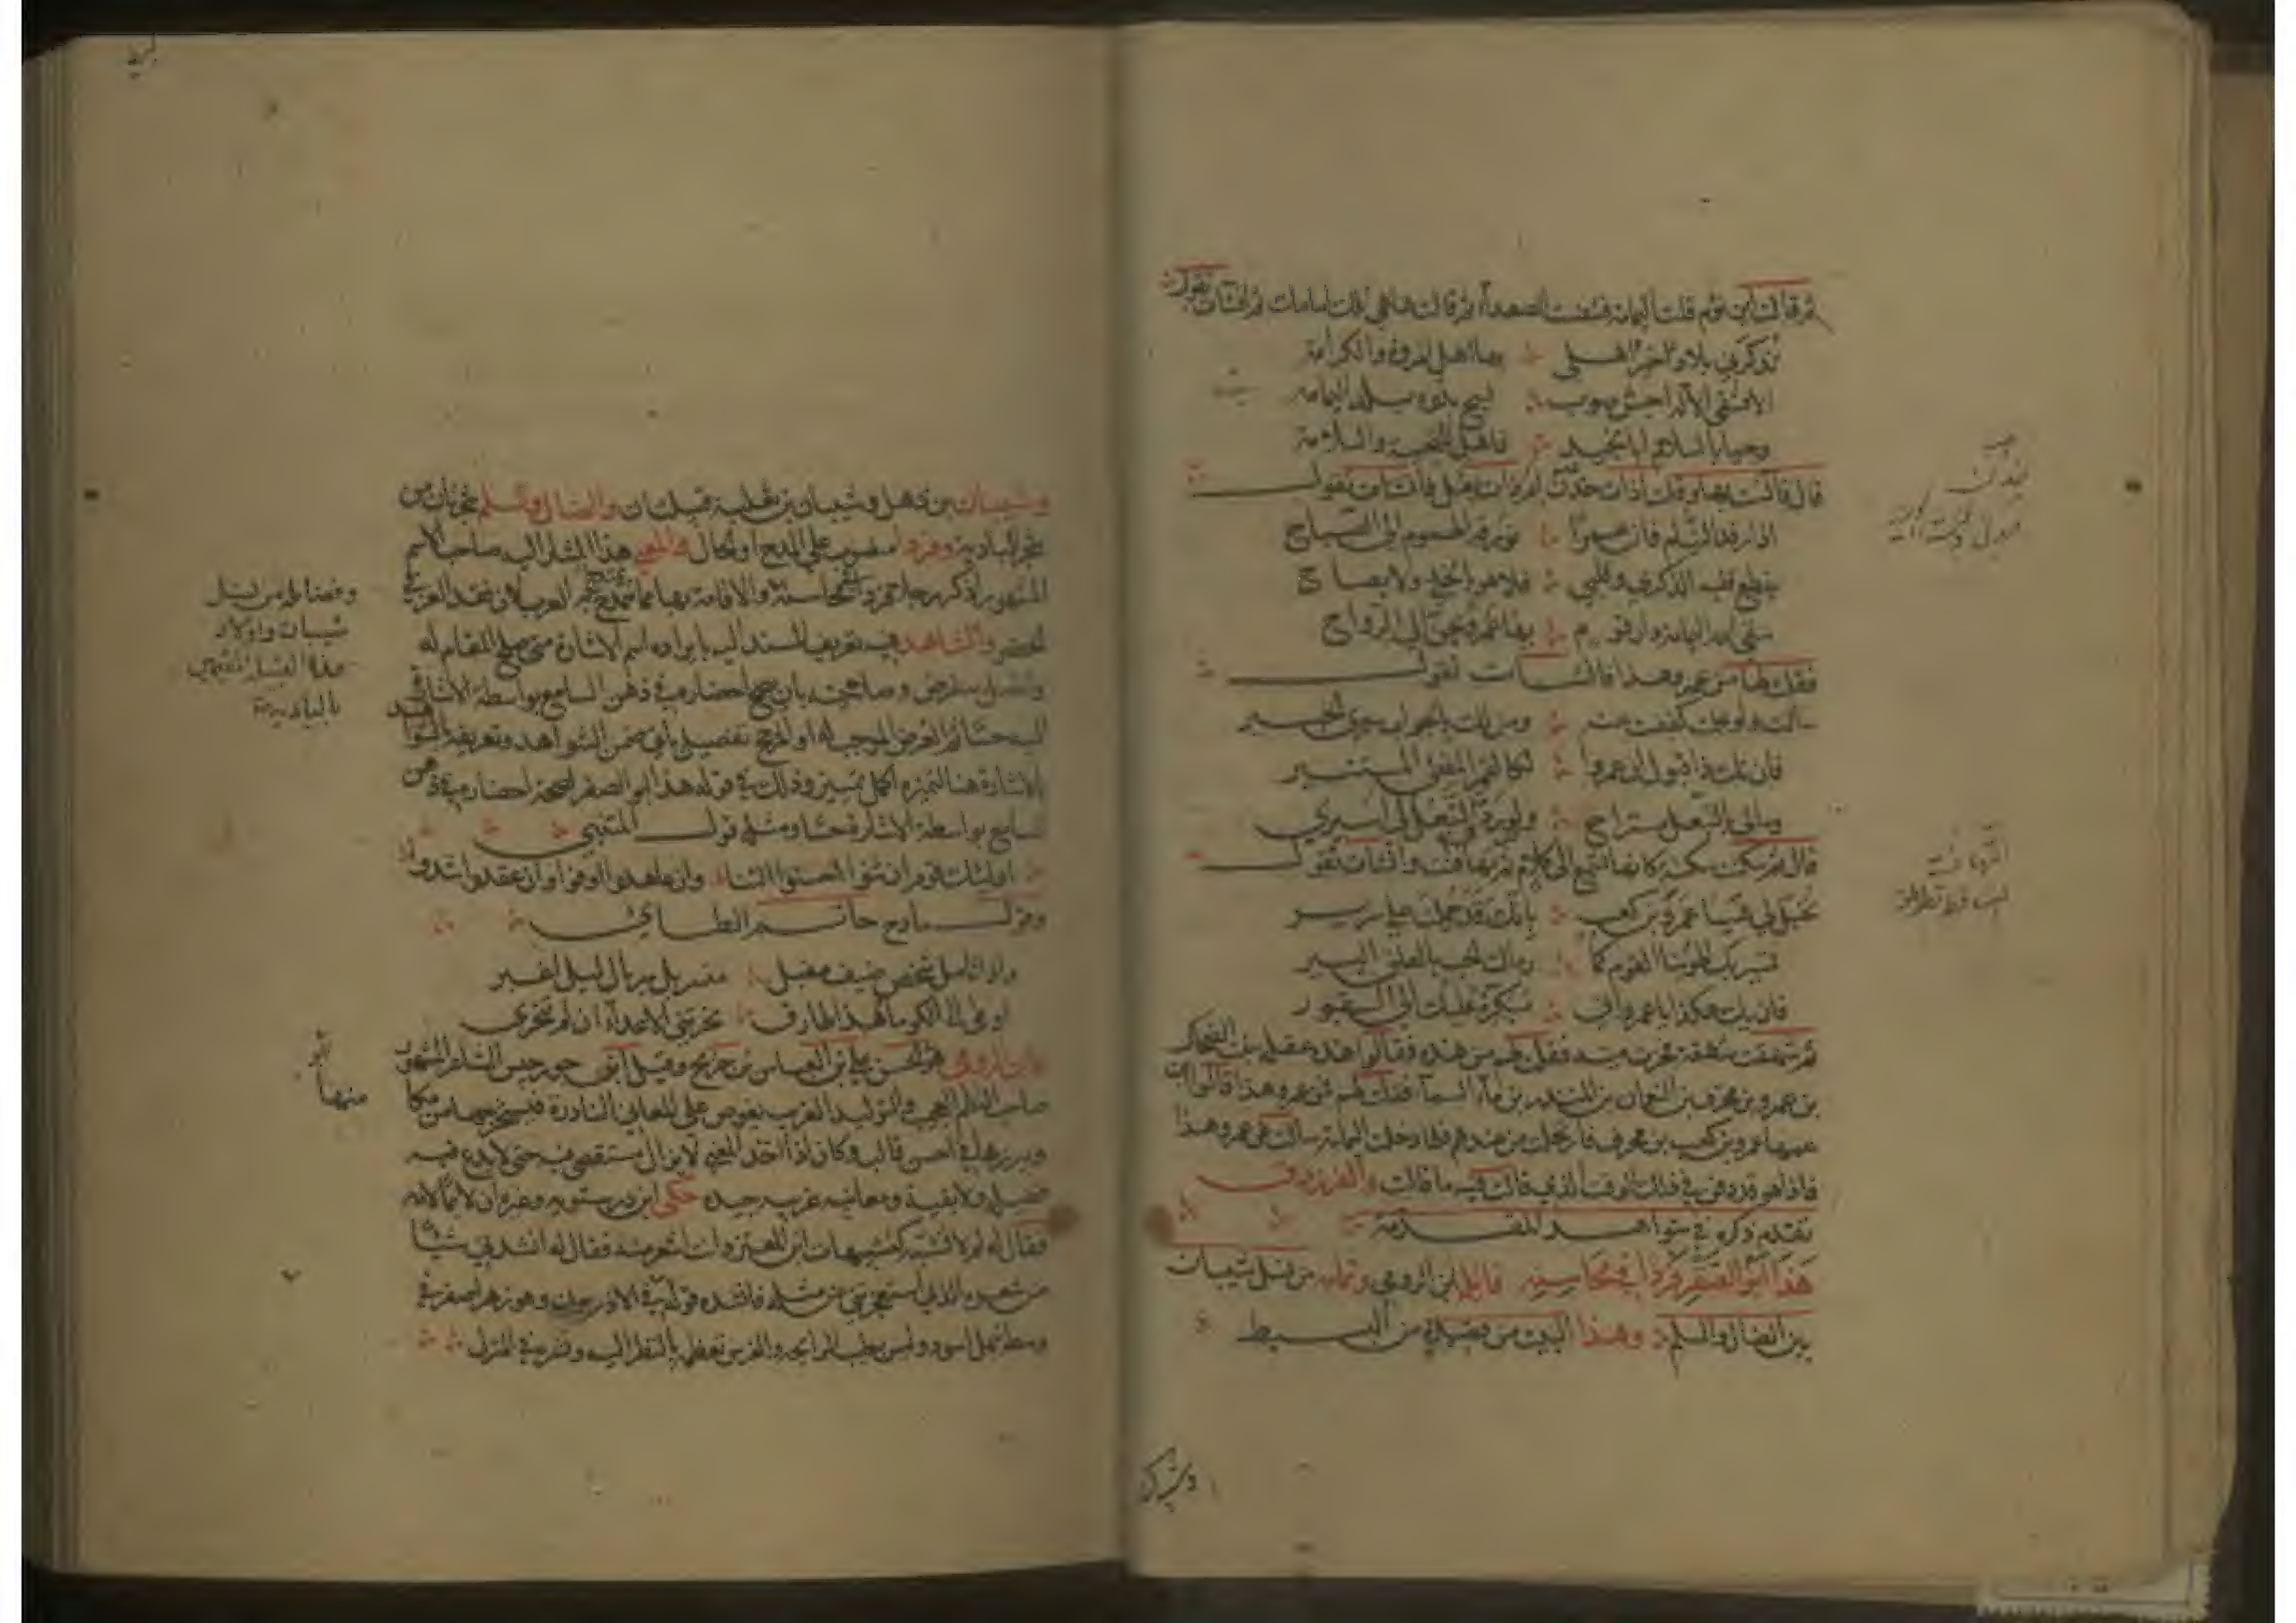 ثم قالت اين تؤم قلت اليمامة فتنفست الصعداء ثم قالت ها هي تلك امامك ثم انشات تقول
تذكرني بلادا خير اهلي بها اهل المروة والكرامه
الا فسقى الاله اجش صوب يسح بدره بلد اليمامه
وحيا بالسلام ابا نجيد فاهل للتحية والسلامة
قال فانست بها وقلت اذات خدن ام ذات بعل فانشات تقول
اذا رقد النيام فان عمرا تؤرقه الهموم الى الصباح
تقطع قلبه الذكرى وقلبي فلا هو بالخلي ولا بصاح
سقى الله اليمامة دار قوم بها عمرو يحن الى الرواح
فقلت لها من عمرو هذا فانشات تقول
سالت ولو علمت كففت عنه ومن لك بالجواب سوى الخبير
فان تك ذا قبول ان عمروا لكالقمر المضئ المستنير
ومالي بالتبعل مستراح ولو رد التبعل لي اسيري
قال ثم سكتت سكتة كانها تتسمع الى كلام ثم تهافتت وانشات تقول
تخيل لي هيا عمرو بن كعب بانك قد حملت على سرير
تسير بك الهوينا القوم لما رماك الحب بالعلق اليسير
فان يك هكذا يا عمرو اني مبكرة عليك الى القبور
ثم شهقت شهقة فخرت ميتة فقلت لهم من هذه فقالوا هذه عقيلة بنت الضحاك
بن عمرو بن محرق بن النعمان بن المنذر بن ماء السماء فقلت لهم فمن عمرو هذا قالوا ابن
عمها عمرو بن كعب بن محرق فارتحلت من عندهم فلما دخلت اليمامة سالت عن عمرو هذا
فاذا هو قد دفن في ذلك الوقت الذي قالت فيه ما قالت والفرزدق
تقدم ذكره في شواهد المقدمة
هذا ابو الصقر فردا في محاسنه قائله ابن الرومي وتمامه من نسل شيبان
بين الضال والسلم وهذا البيت من قصيدة من البسيط
وشيبان بن ذهل وشيبان بن ثعلبة قبيلتان والضال والسلم شجرتان من
شجر البادية وفردا منصوب على المدح او الحال والمعنى هذا المشار اليه صاحب الاسم
المشهور اذا ذكر رجل تفرد في محاسنه والاقامة بها مما تتمدح به العرب لان فقد العز في
الحضر والشاهد فيه تعريف المسند اليه بايراده اسم الاشارة متى صلح المقام له
واتصل به غرض وصلاحيته بان يصح احضاره في ذهن السامع بواسطة الاشارة
اليه حسا ثم الغرض الموجب له او المرجح تفصيل ياتي ضمن الشواهد وتعريفه
بالاشارة هنا لتميزه اكمل تمييز وذلك في قوله هذا ابو الصقر لصحة احضاره في ذهن
السامع بواسطة الاشارة حسا ومثله قول المتنبي
اولئك قوم ان بنوا احسنوا البنا وان عاهدوا اوفوا وان عقدوا شدوا
وقول مادح حاتم الطائي
واذا تامل شخص ضيف مقبل متسربل سربال ليل اغبر
اوما الى الكوماء هذا طارق نحرتني الاعداء ان لم تنحري
وابن الرومي هو الحسن علي بن العباس بن جريج وقيل ابن جورجيس الشاعر المشهور
صاحب النظم العجيب والتوليد الغريب يغوص على المعاني النادرة فيستخرجها من مكا
ويبرزها في احسن قالب وكان اذا اخذ المعنى لا يزال يستقصي فيه حتى لا يدع فيه
فضلة ولا بقية ومعانيه غريبة جيدة حكى ابن درستويه وغيره ان لائما لامه
فقال له لم لا تشبه كتشبيهات ابن المعتز وانت اشعر منه فقال له انشدني شيئا
من شعره الذي استعجزتني من مثله فانشده قوله في الاذريون وهو زهر اصفر في
وسطه خمل اسود وليس بطيب الرائحة والفرس تعظمه بالنظر اليه وتفرشه في المنزل
وفضائله من نسل
شيبان واولاد
هذه القبيلة المقيمين
بالبادية
ابو
منها